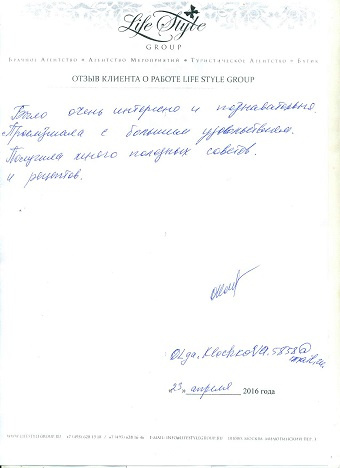 Life Style
GROUP
Брачное Агентство • Агентство Мероприятий • Туристическое Агентство •
ОТЗЫВ КЛИЕНТА О РАБОТЕ LIFE STYLE GROUP
Было очень интересно и познавательно.
Прослушала с большим удовольствием.
Получила много полезных советов.
и рецептов.
Olga.Klochkova.5858@
mail.ru
23 апреля 2016 года